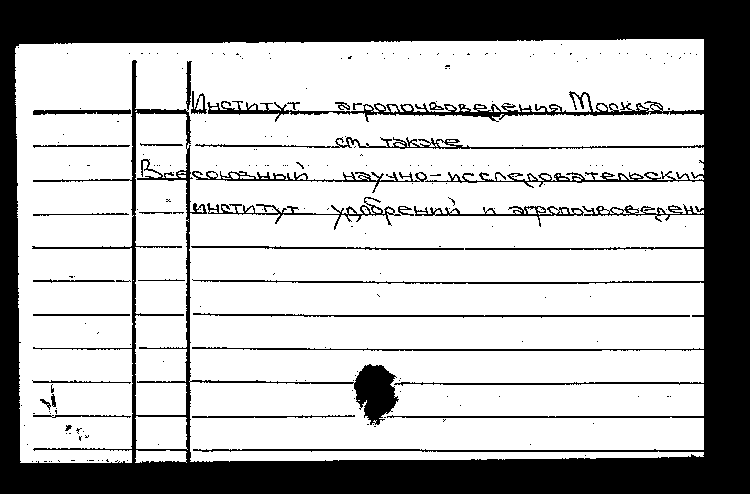 Институт агропочвоведения. Москва.
см. также.
Всесоюзный научно-исследовательский
институт удобрений и агропочвоведени